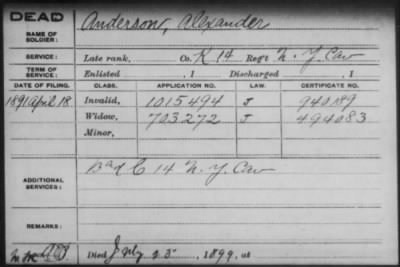 DEAD
Anderson, Alexander
NAME OF SOLDIER:
SERVICE: Late rank, Co. K 14 Reg't N. Y. Cav
TERM OF SERVICE: Enlisted , 1 Discharged , 1
DATE OF FILING. CLASS. APPLICATION NO. LAW. CERTIFICATE NO.
1891 April 18 Invalid, 1015494 J 940189
Widow, 703272 J 494083
Minor,
ADDITIONAL SERVICES: C 14 N. Y. Cav
REMARKS:
Died July 23, 1899, at